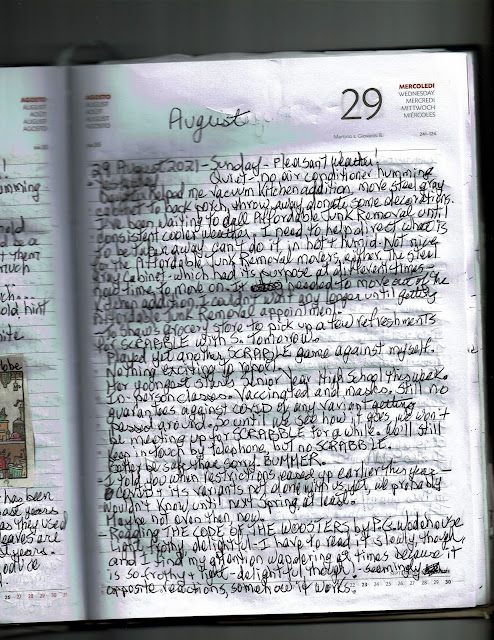 AGOSTO
AUGUST
AOÛT
AUGUST
AGOSTO
29
MERCOLEDÌ
WEDNESDAY
MERCREDI
MITTWOCH
MIÉRCOLES
Martirio s. Giovanni B.
241-124
August
29 August 2021 - Sunday - Pleasant weather!
Quiet - no air conditioner humming
helped me vacuum kitchen addition, move steel gray
cabinet to back porch, throw away/donate some decorations.
I've been waiting to call Affordable Junk Removal until
consistent cooler weather. I need to help direct what is
to be taken away can't do it in hot & humid. Not nice
to the Affordable Junk Removal movers, either. The steel
gray cabinet - which had its purpose at different times -
now time to move on. It needed to move out of the
kitchen addition I couldn't wait any longer until getting
Affordable Junk Removal appointment.
- To Shaws grocery store to pick up a few refreshments
for SCRABBLE with S. Tomorrow.
Played yet another SCRABBLE game against myself.
Nothing exciting to report.
Her youngest starts Senior Year High School this week.
In-person classes. Vaccinated and masks. Still no
guarantees against COVID of any variant getting
passed around. So until we see how it goes, we won't
be meeting up for SCRABBLE for a while. We'll still
keep in touch by telephone, but no SCRABBLE.
Better be safe than sorry. BUMMER.
- I told you when restrictions eased up earlier this year -
COVID & its variants not done with us yet, we probably
wouldn't know until next Spring at least.
Maybe not even then, now.
- Reading THE CODE OF THE WOOSTERS by P.G. Wodehouse
Light, frothy, delightful - I have to read it slowly, though,
and I find my attention wandering at times because it
is so frothy & light - delightful, though) - seemingly
opposite reactions, somehow it works.
22 23 24 25 26 27 28 29 30
26 27 28 29 30 31